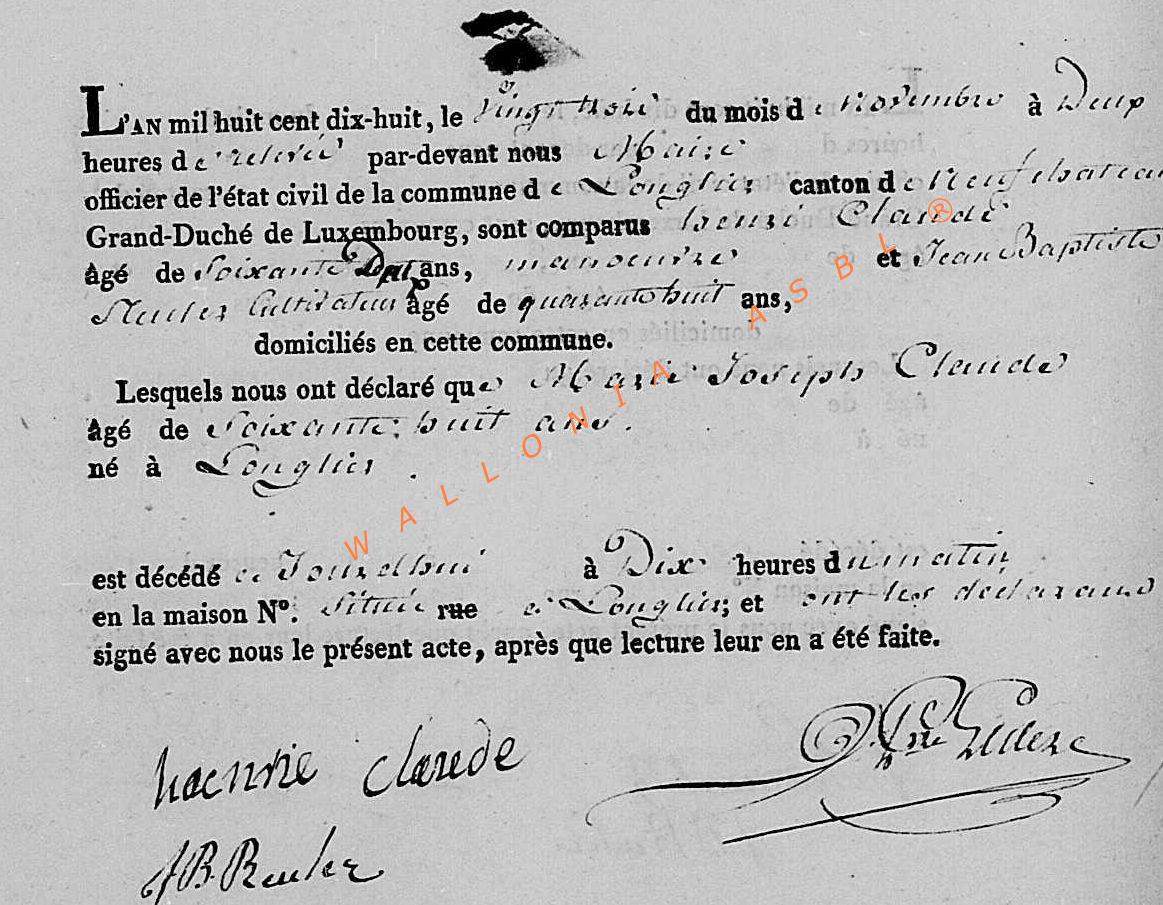 L'AN mil huit cent dix-huit, le vingt trois du mois de novembre à Deux
heures de relevée par-devant nous Maire
officier de l'état civil de la commune de Longlier canton de Neufchateau
Grand-Duché de Luxembourg, sont comparus henri Claude
âgé de Soixante Sept ans, manoeuvre et Jean Baptiste
Reuler Cultivateur âgé de quarante huit ans,
domiciliés en cette commune.
Lesquels nous ont déclaré que Marie Joseph Claude
âgé de Soixante huit ans.
né à Longlier.
est décédé à Dix heures du matin
en la maison N°. située rue à Longlier; et ont les déclarans
signé avec nous le présent acte, après que lecture leur en a été faite.
haenrie claude
JB. Reuler
WALLONIA ASBL ®